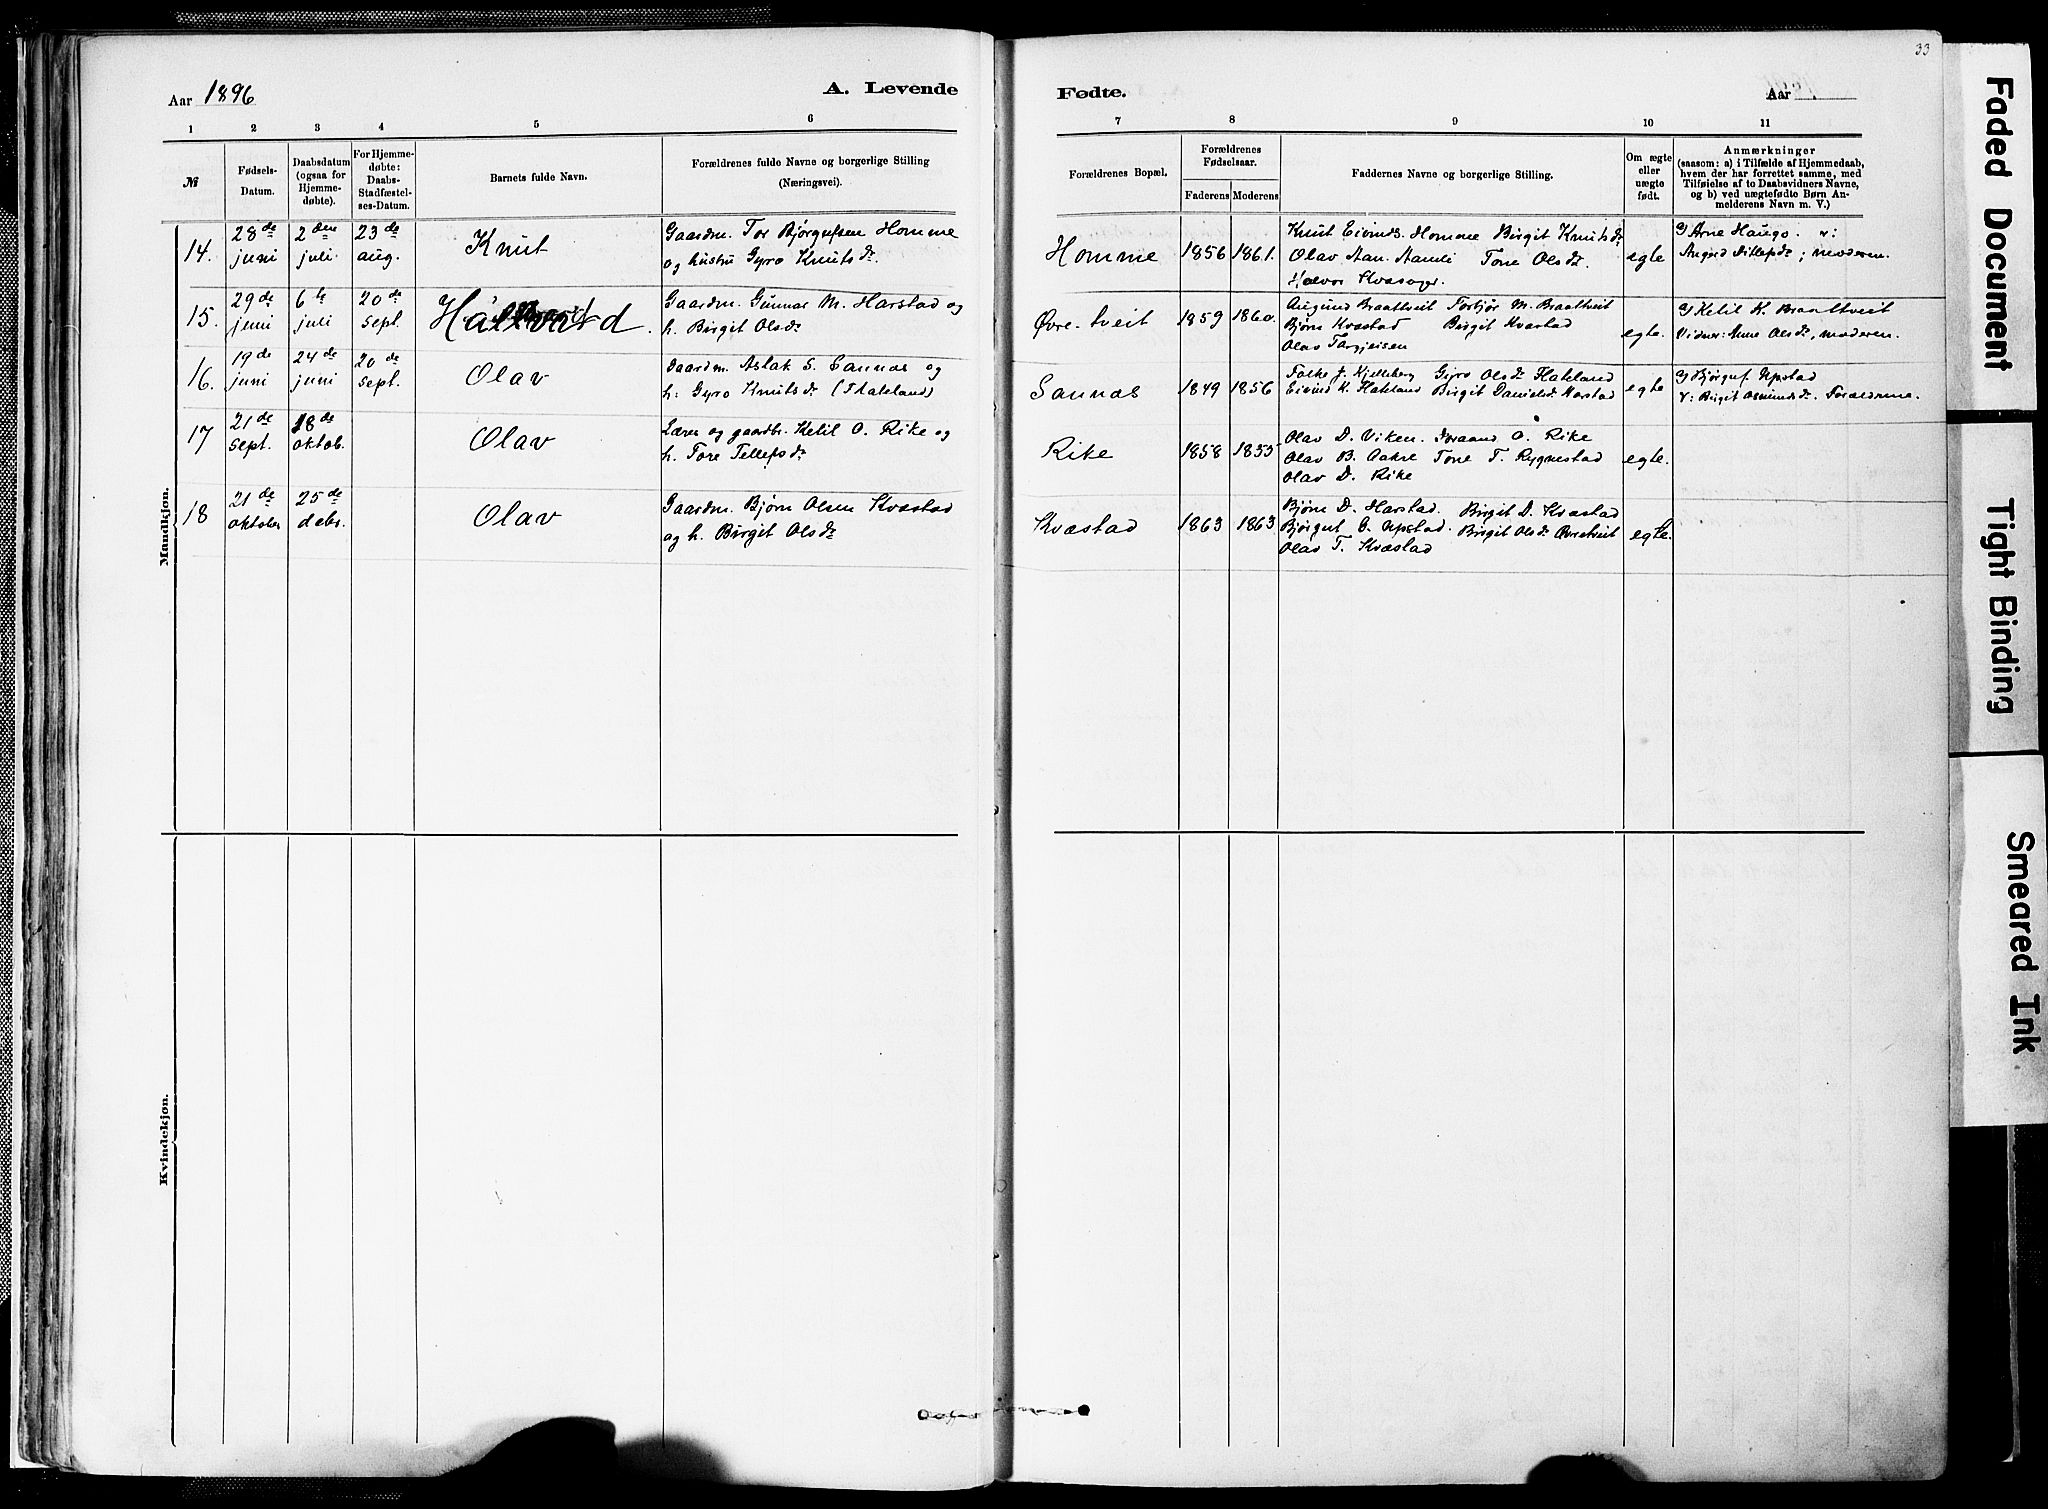 33
Aar 1896
A. Levende
Fødte.
Aar
1 2 3 4 5 6 7 8 9 10 11
№
Fødsels-
Datum.
Daabsdatum
(ogsaa for
Hjemme-
døbte).
For Hjemme-
døbte:
Daabs-
Stadfæstel-
ses-Datum.
Barnets fulde Navn.
Forældrenes fulde Navne og borgerlige Stilling
(Næringsvei).
Forældrenes Bopæl.
Forældrenes
Fødselsaar.
Faderens Moderens
Faddernes Navne og borgerlige Stilling.
Om ægte
eller
uægte
født.
Anmærkninger
(saasom: a) i Tilfælde af Hjemmedaab,
hvem der har forrettet samme, med
Tilføielse af to Daabsvidners Navne,
og b) ved uægtefødte Børn An-
melderens Navn m. V.)
Mandkjøn.
14.
28de
juni
2den
juli.
23de
aug.
Knut
Gaardm. Tor Bjørgufsen Homme
og hustru Gyro Knutsdr.
Homme
1856 1861.
Knut Eivinds. Homme Birgit Knutsdr
Olav Aan. Aamli Tone Olsdr.
Halvor Kvasager.
egte
G) Arne Haugo. v:
Angund Ditlefsdr; moderen.
15.
29de
juni
6te
juli
20de
sept.
Hallvard.
Gaardm. Gunnar M. Harstad og
h. Birgit Olsdr
Øvre-tveit
1859 1860.
Augund Braattveit Torbjør M. Braattveit
Bjørn Kvastad Birgit Kvastad
Olav Targjeisen
egte.
G) Ketil K. Braattveit
Vidner: Anne Olsdr, moderen.
16.
19de
juni
24de
juni
20de
sept.
Olav
Gaardm. Aslak S. Sannæs og
h: Gyro Knutsdr (Hateland)
Sannæs
1849 1856
Folke J. Kjelleberg Gyro Olsdr Hateland
Eivind K. Hateland Birgit Danielsdr Harstad
egte
G) Bjørguf Upstad
V: Birgit Asmundsdr. Forældrene.
17
21de
sept.
18de
oktob.
Olav
Lærer og gaardbr. Ketil O. Rike og
h. Tore Tellefsdr
Rike
1858 1855
Olav D. Viken. Joraand O. Rike
Olav B. Aakre Tone T. Rygnestad
Olav D. Rike
egte.
18
21de
oktober
25de
debr.
Olav
Gaardm. Bjørn Olsen Kvæstad
og h. Birgit Olsdr
Kvæstad
1863 1863
Bjørn D. Harstad. Birgit D. Kvæstad
Bjørguf O. Upstad. Birgit Olsdr Øvretveit
Olav T. Kvæstad
egte.
Kvindekjøn.
Faded Document
Tight Binding
Smeared Ink